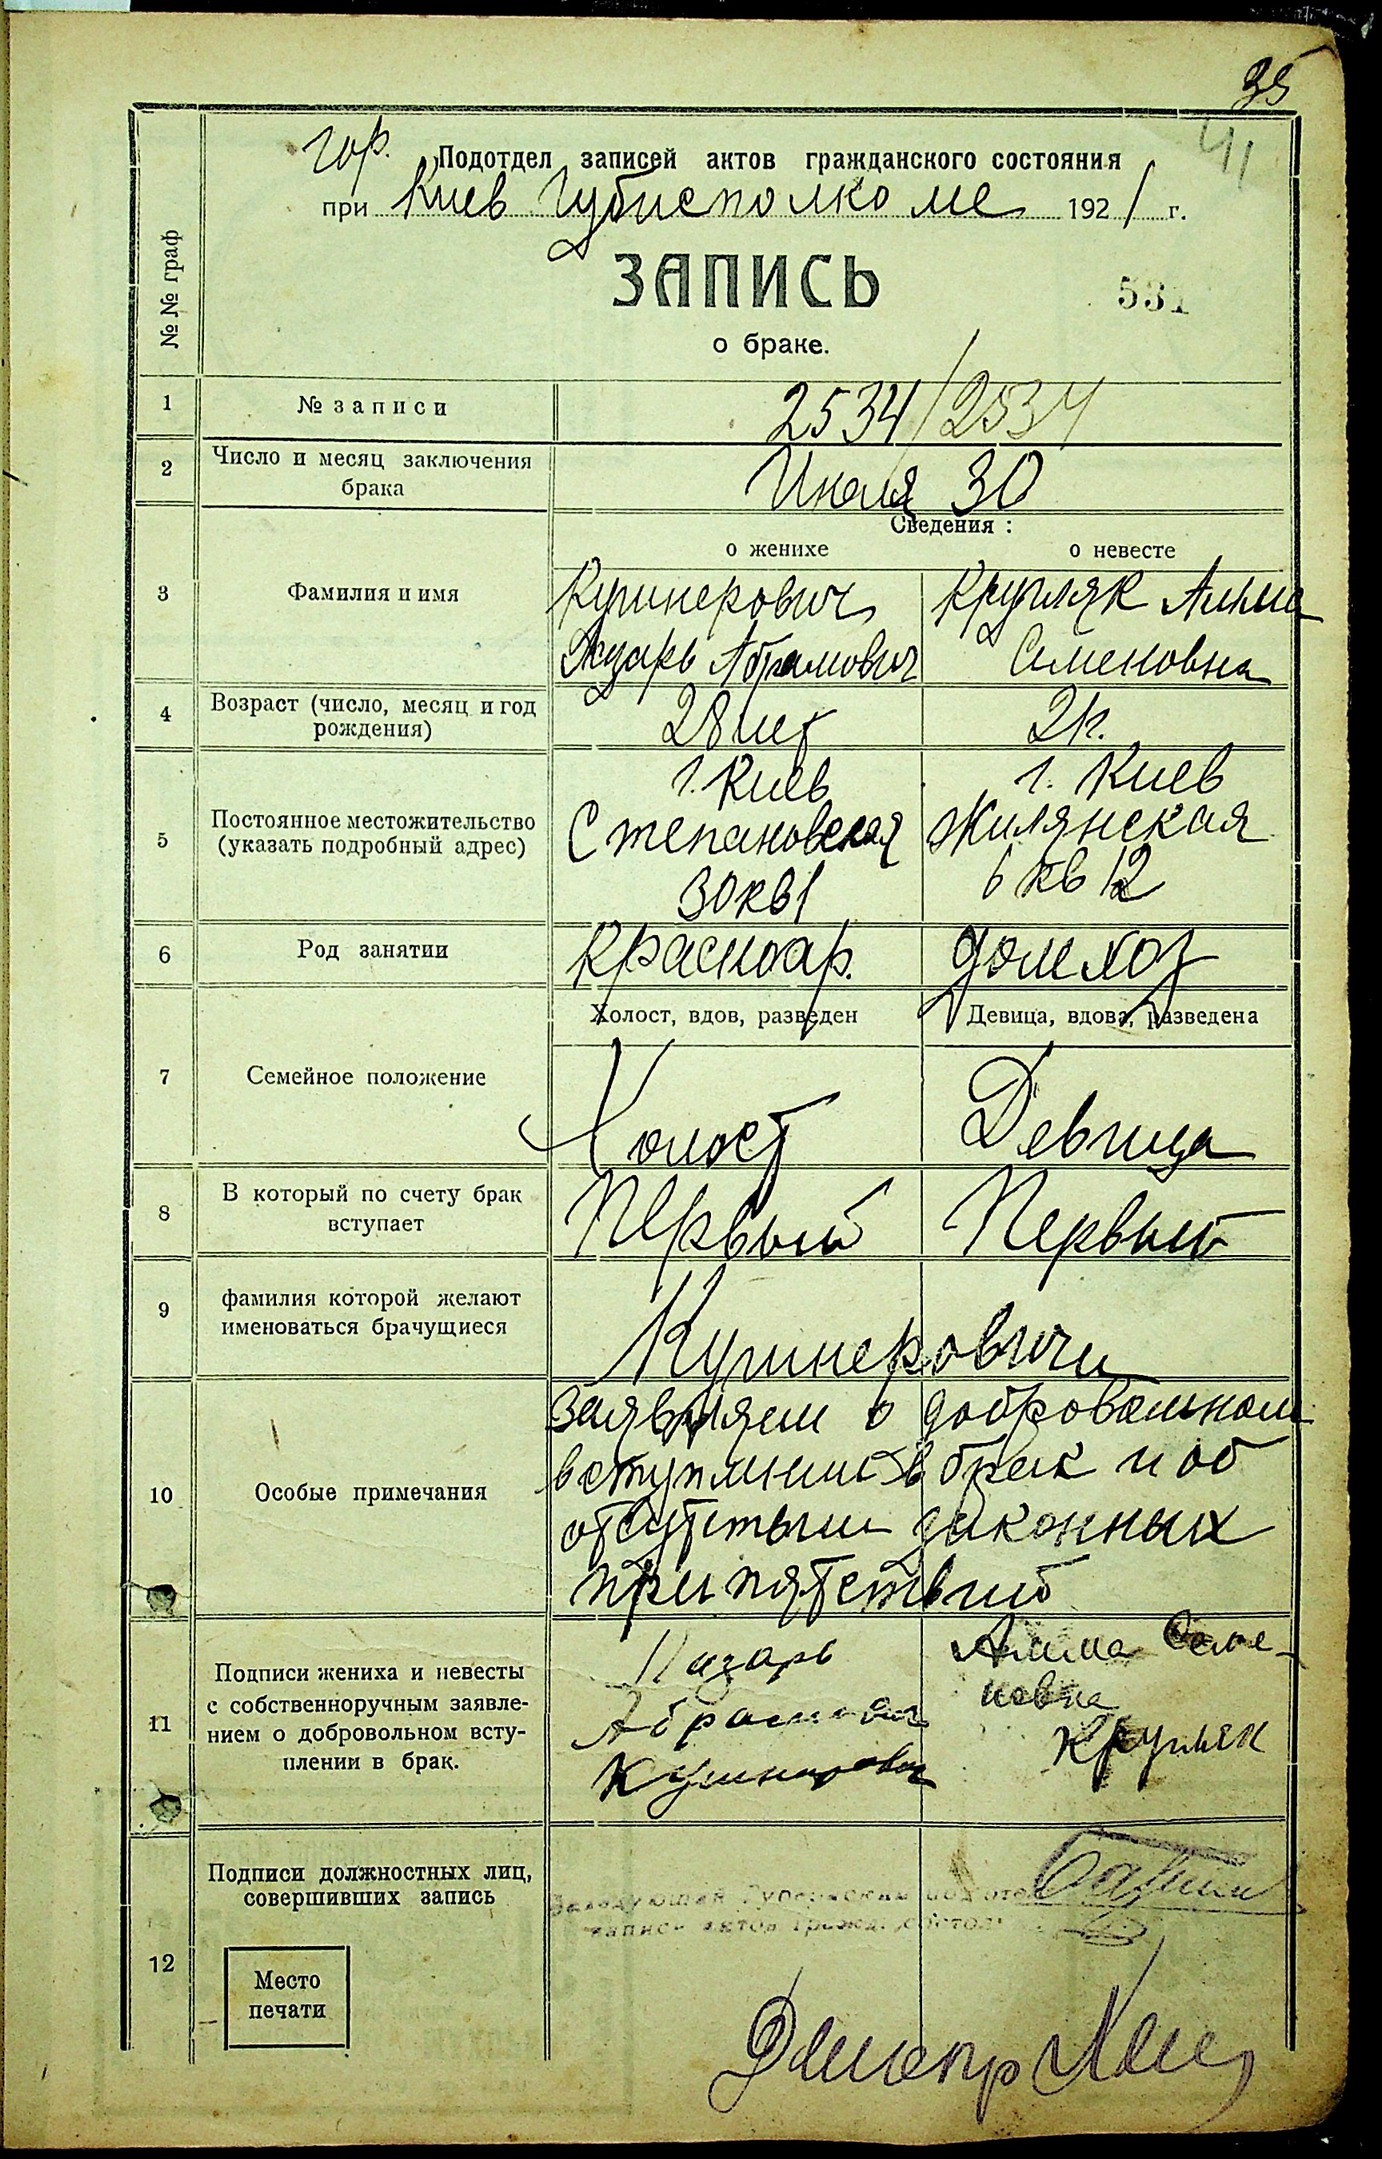 35
41
гор. Подотдел записей актов гражданского состояния
при Киев Губисполкоме 1921 г.
ЗАПИСЬ
531
о браке.
№№ граф
1 № записи 2534/2534
2 Число и месяц заключения брака Июля 30
Сведения:
о женихе о невесте
3 Фамилия и имя Кушнерович Крупляк Алима
Лазарь Абрамович Семеновна
4 Возраст (число, месяц и год рождения) 28 лет 21г.
5 Постоянное местожительство (указать подробный адрес) г. Киев г. Киев
Степановская Жилянская
30 кв 1 6 кв 12
6 Род занятии Красноар. дом хоз
Холост, вдов, разведен Девица, вдова, разведена
7 Семейное положение Холост Девица
8 В который по счету брак вступает Первый Первый
9 фамилия которой желают именоваться брачущиеся Кушнеровичи
10 Особые примечания
заявляем о добровольном
вступлении в брак и об
отсутствии законных
препятствий
11 Подписи жениха и невесты
с собственноручным заявле-
нием о добровольном всту-
плении в брак.
Лазарь
Абрамович
Кушнерович
Семе-
новна
Крупляк
12 Подписи должностных лиц,
совершивших запись
Заведующий Губернским подотд
записи актов гражд. состоя
Место
печати